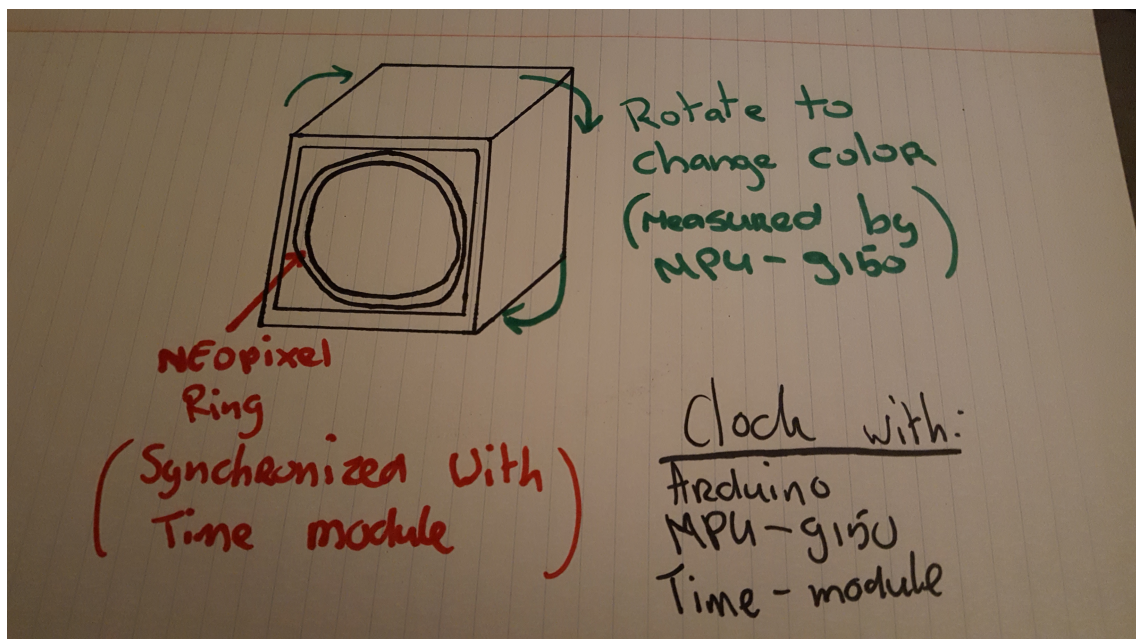 Rotate to
change color
(Measured by
MPU-9150)
NEopixel
Ring
(Synchronized with
Time module)
Clock with:
Arduino
MPU-9150
Time-module